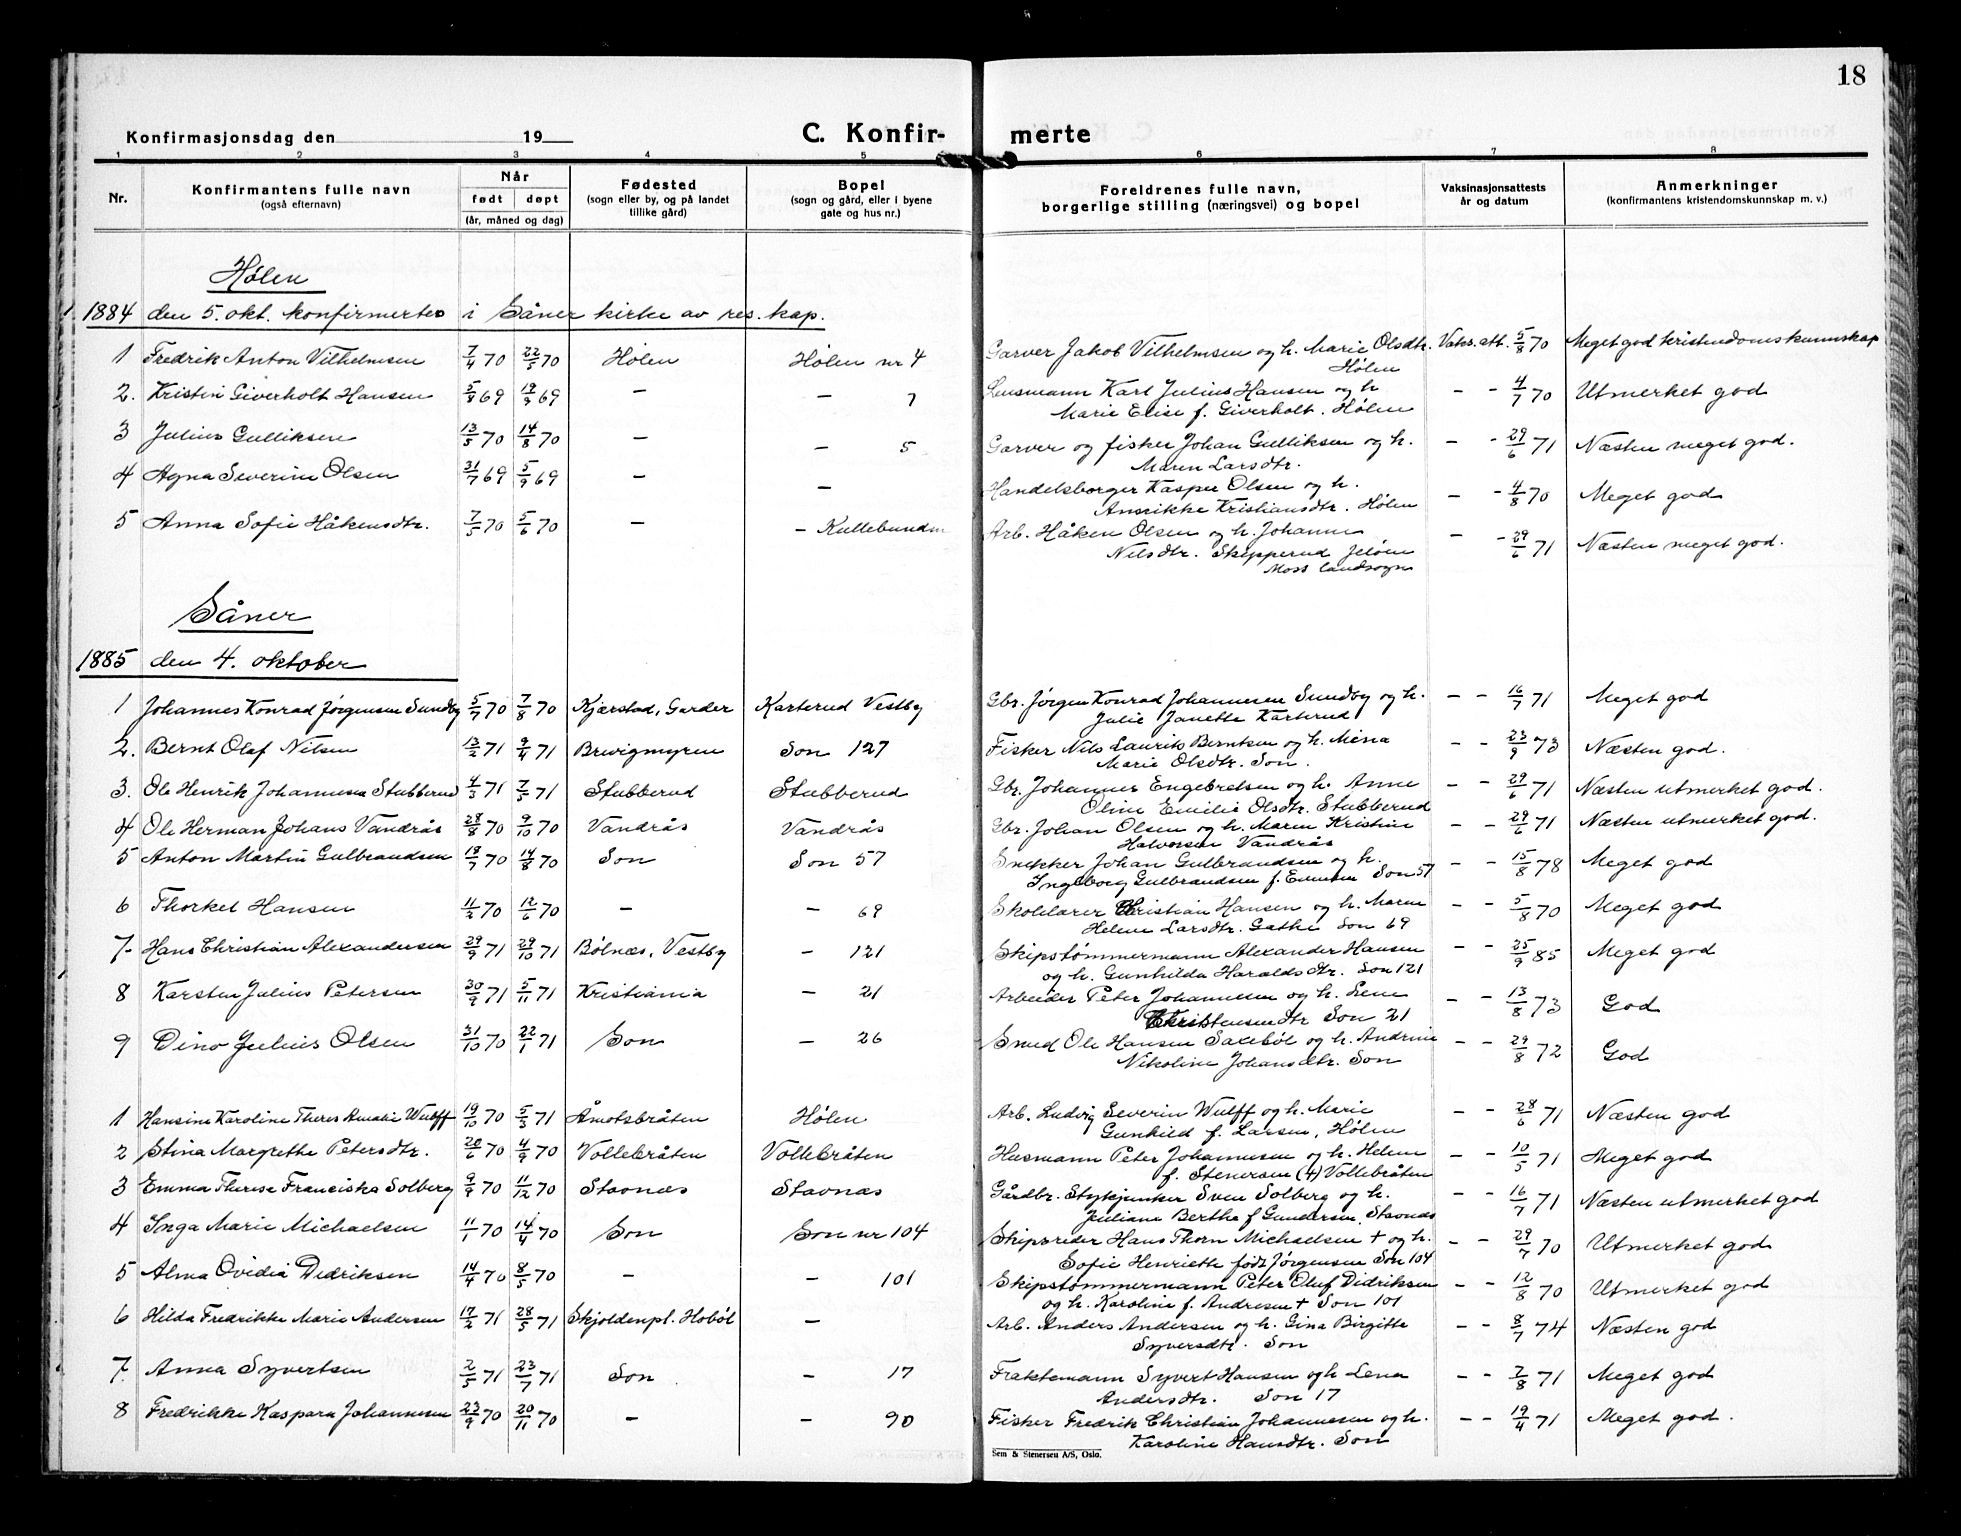 18
Konfirmasjonsdag den 19
C. Konfir- merte
1 2 3 4 5 6 7 8
Nr. Konfirmantens fulle navn (også efternavn) Når født døpt (år, måned og dag) Fødested (sogn eller by, og på landet tillike gård) Bopel (sogn og gård, eller i byene gate og hus nr.) Foreldrenes fulle navn, borgerlige stilling (næringsvei) og bopel Vaksinasjonsattests år og datum Anmerkninger (konfirmantens kristendomskunnskap m. v.)
Hølen
1884 den 5. okt. konfirmertes i Såner kirke av res. kap.
1 Fredrik Anton Vilhelmsen 7/4 70 22/5 70 Hølen Hølen nr 4 Garver Jakob Vilhelmsen og h. Marie Olsdtr. Vaks. att. 5/8 70 Meget god kristendomskunnskap
Hølen
2. Kristin Giverholt Hansen 5/8 69 19/9 69 — — 7 Lensmann Karl Julius Hansen og h. - - 4/7 70 Utmerket god
Marie Elise f. Giverholt. Hølen
3 Julius Gulliksen 13/5 70 14/8 70 — — 5 Garver og fisker Johan Gulliksen og h. - - 29/6 71 Næsten meget god.
Maren Larsdtr.
4 Agna Severine Olsen 31/7 69 5/9 69 — — Handelsborger Kasper Olsen og h. - - 4/8 70 Meget god
Anrikke Kristiansdtr. Hølen
5 Anna Sofie Håkensdtr. 7/5 70 5/6 70 — — Kullebunden Arb. Håken Olsen og h. Johanne - - 29/6 71 Næsten meget god.
Nilsdtr. Skipperud Jeløen
Moss landsogn
Såner
1885 den 4. oktober
1 Johannes Konrad Jørgensen Sundby 5/7 70 7/8 70 Kjærstad, Garder Karterud Vestby Gbr. Jørgen Konrad Johannesen Sundby og h. - - 16/7 71 Meget god
Julie Janette Karterud
2. Bernt Olaf Nilsen 13/2 71 9/4 71 Brevigmyren Son 127 Fisker Nils Laurits Berntsen og h. Mina - - 23/9 73 Næsten god.
Marie Olsdtr. Son.
3. Ole Henrik Johannesen Stubberud 4/3 71 7/5 71 Stubberud Stubberud Gbr. Johannes Engebretsen og h. Anne - - 29/6 71 Næsten utmerket god.
Oline Emilie Olsdtr. Stubberud
4 Ole Herman Johans Vandrås 28/8 70 9/10 70 Vandrås Vandrås Gbr. Johan Olsen og h. Maren Kristine - - 29/6 71 Næsten utmerket god.
Halvorsen Vandrås
5 Anton Martin Gulbrandsen 18/7 70 14/8 70 Son Son 57 Snekker Johan Gulbrandsen og h. - - 15/8 78 Meget god
Ingeborg Gulbrandsen f. Evensen Son 57
6 Thorkel Hansen 11/2 70 12/6 70 — — 69 Skolelærer Christian Hansen og h. Maren - - 5/8 70 Meget god
Helene Larsdtr. Gathe Son 69
7. Hans Christian Alexandersen 29/9 71 29/10 71 Bølnæs, Vestby — 121 Skipstømmermann Alexander Hansen - - 25/9 85 Meget god
og h. Gunhilda Haraldsdtr. Son 121
8 Karsten Julius Petersen 30/9 71 5/11 71 Kristiania — 21 Arbeider Peter Johannessen og h. Lene - - 13/8 73 God
Christensendtr Son 21
9 Dino Julius Olsen 31/10 70 22/1 71 Son — 26 Smed Ole Hansen Saxebøl og h. Andrine - - 29/8 72 God
Nikoline Johansdtr. Son
1 Hansine Karoline Theres Amalie Wulff 19/10 70 5/3 71 Åmotsbråten Hølen Arb. Ludvig Severin Wulff og h. Marie - - 28/6 71 Næsten god
Gunhild f. Larsen, Hølen
2 Stina Margrethe Petersdtr. 20/6 70 4/9 70 Vollebråten Vollebråten Husmann Peter Johannesen og h. Helene - - 10/5 71 Meget god
f. Stenersen (+) Vollebråten
3 Emma Therese Franciska Solberg 9/9 70 11/12 70 Stavnæs Stavnæs Gårdbr. Stykjunker Sven Solberg og h. - - 16/7 71 Næsten utmerket god
Juliane Berthe f Gundersen. Stavnæs
4 Inga Marie Michaelsen 11/1 70 14/4 70 Son Son nr 104 Skipsreder Hans Thorn Michaelsen + og h. - - 29/7 70 Utmerket god
Sofie Henriette født Jørgensen Son 104
5 Alma Ovidia Didriksen 14/4 70 8/5 70 — — 101 Skipstømmermann Peter Oluf Didriksen - - 12/8 70 Utmerket god
og h. Karoline f. Andresen + Son 101
6 Hilda Fredrikke Marie Andersen 17/2 71 28/5 71 Skjoldenpl. Hobøl — Arb. Anders Andersen og h. Gina Birgitte - - 8/7 74 Næsten god
Syversdtr. Son
7. Anna Syvertsen 2/5 71 23/7 71 Son — 17 Fraktemann Syvert Hansen og h Lena - - 7/8 71 Meget god
Andersdtr. Son 17
8 Fredrikke Kaspara Johannesen 23/9 70 20/11 70 — — 90 Fisker Fredrik Christian Johannesen og h. - - 19/4 71 Meget god.
Karoline Hansdtr. Son
Sem & Stenersen A/S, Oslo.